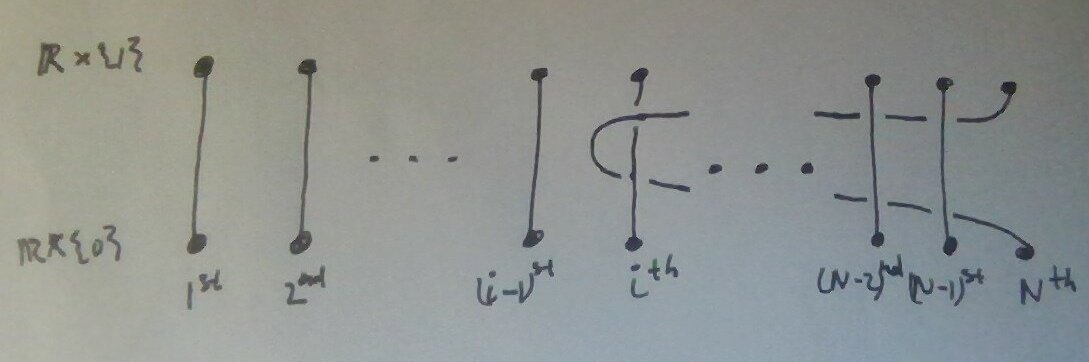 ℝ × {1}
ℝ × {0}
1st 2nd (i-1)st ith (N-2)nd (N-1)st Nth